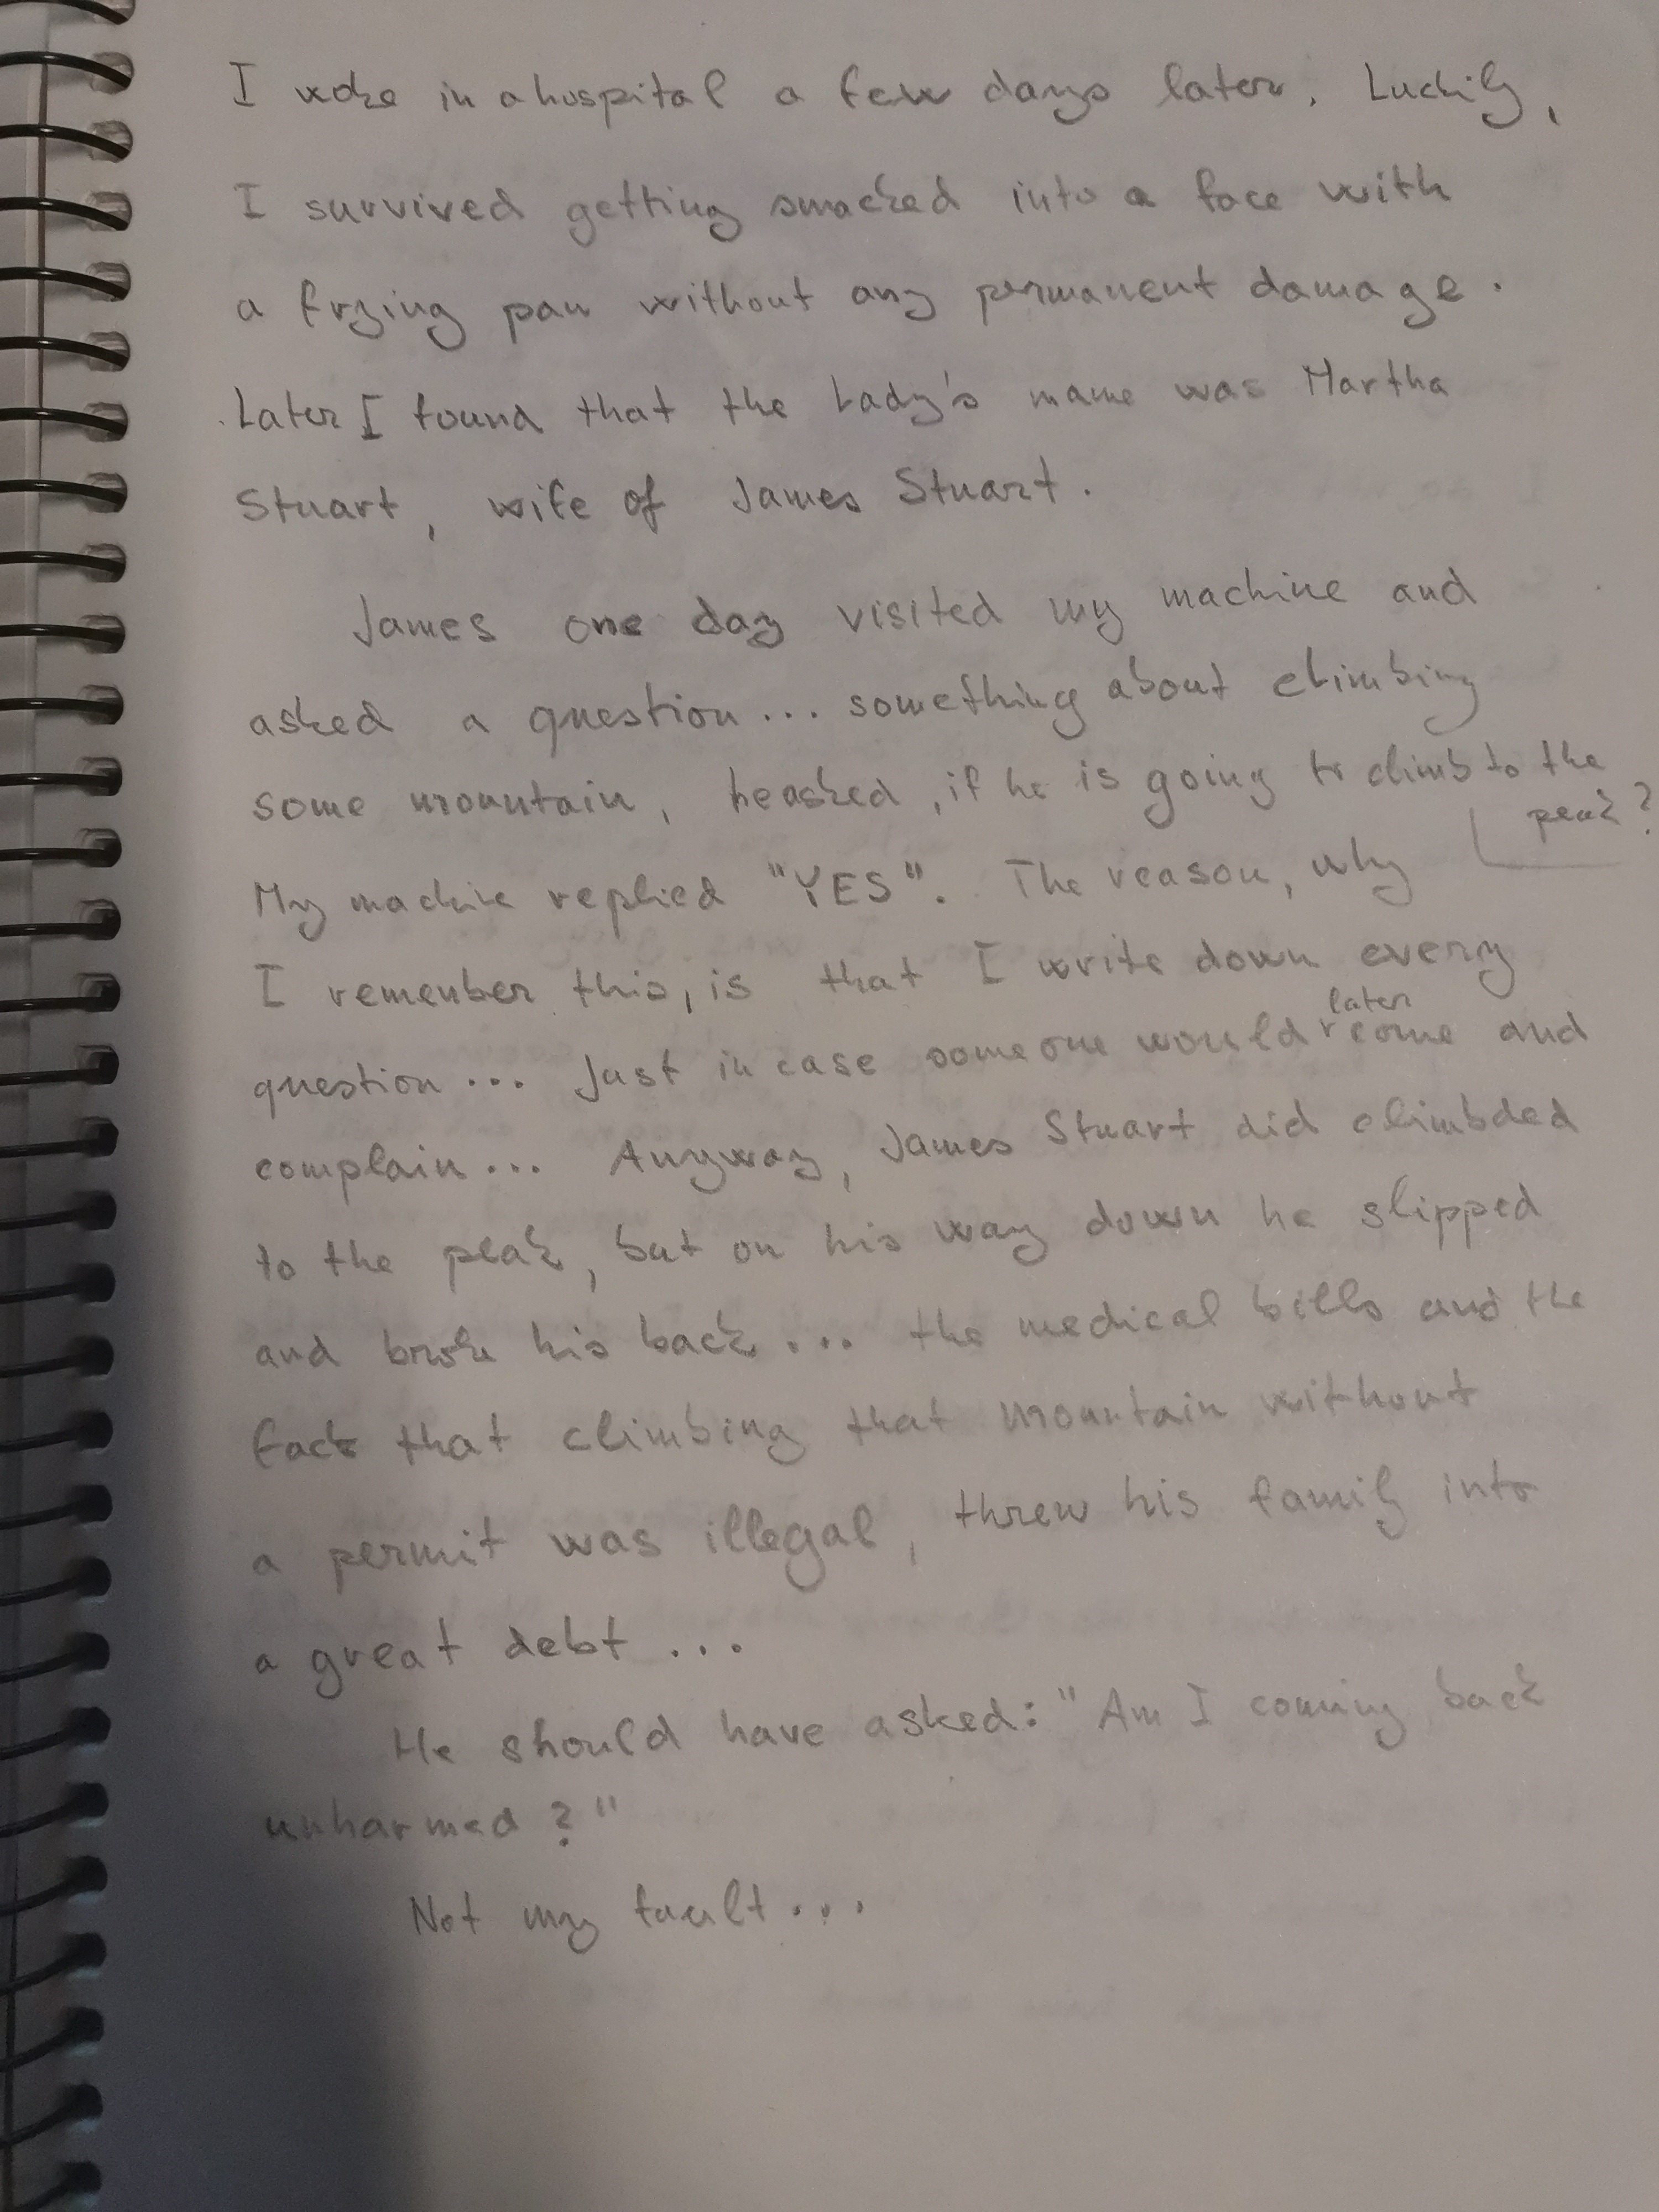 I woke in a hospital a few days later. Luckily,
I survived getting smacked into a face with
a frying pan without any permanent damage.
Later I found that the Lady's name was Martha
Stuart, wife of James Stuart.
James one day visited my machine and
asked a question... something about climbing
some mountain, he asked, if he is going to climb to the
peak?
My machine replied "YES". The reason, why
I remember this, is that I write down every
later
question... Just in case someone would come and
complain... Anyway, James Stuart did climbded
to the peak, but on his way down he slipped
and broke his back... the medical bills and the
fact that climbing that mountain without
a permit was illegal, threw his family into
a great debt...
He should have asked: "Am I coming back
unharmed?"
Not my fault...